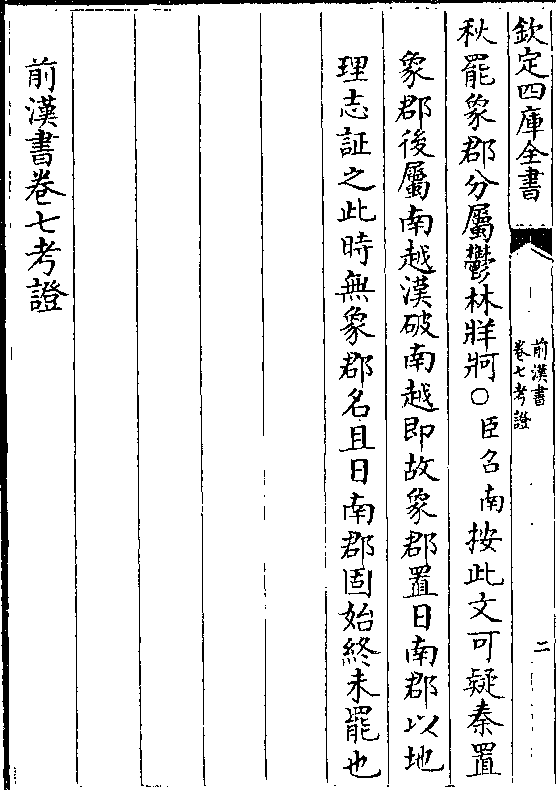 欽定四庫全書
前漢書
卷七考證
二
秋罷象郡分屬鬱林牂牁○臣召南按此文可疑秦置
象郡後屬南越漢破南越即故象郡置日南郡以地
理志証之此時無象郡名且日南郡固始終未罷也
前漢書卷七考證